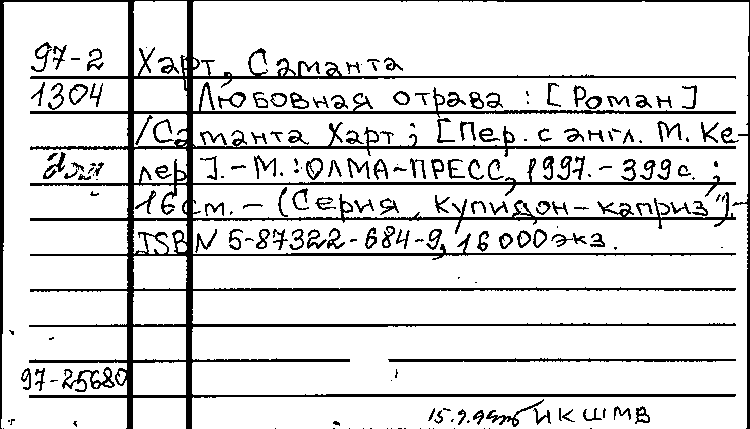 97-2 Харт, Саманта
1304 Любовная отрава : [Роман]
/Саманта Харт ; [Пер. с англ. М. Ке-
лер]. - М. : ОЛМА-ПРЕСС, 1997. - 399 с. ;
16 см. - (Серия "Купидон-каприз"). -
ISBN 5-87322-684-9, 16 000 экз.
97-25680
15.9.99 ИКШМВ